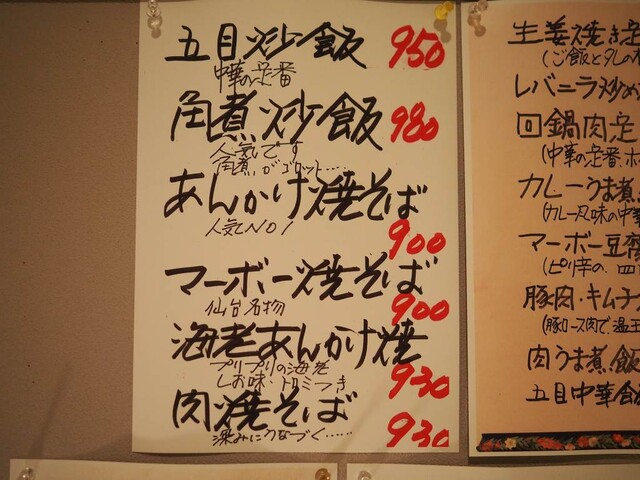 五目炒飯 950
中華の定番
角煮炒飯 980
人気です
角煮がゴロット……
あんかけ焼そば
人気NO1
900
マーボー焼そば
仙台名物
900
海老あんかけ焼
プリプリの海老
しお味・トロミつき
930
肉焼そば
深みにうなづく……
930
生姜焼き定
(ご飯とタレの
レバニラ炒め
回鍋肉定
(中華の定番、ホ
カレーうま煮
(カレー風味の中華
マーボー豆腐
(ピリ辛の、四
豚肉・キムチ
(豚ロース肉で、温玉
肉うま煮飯
五目中華飯